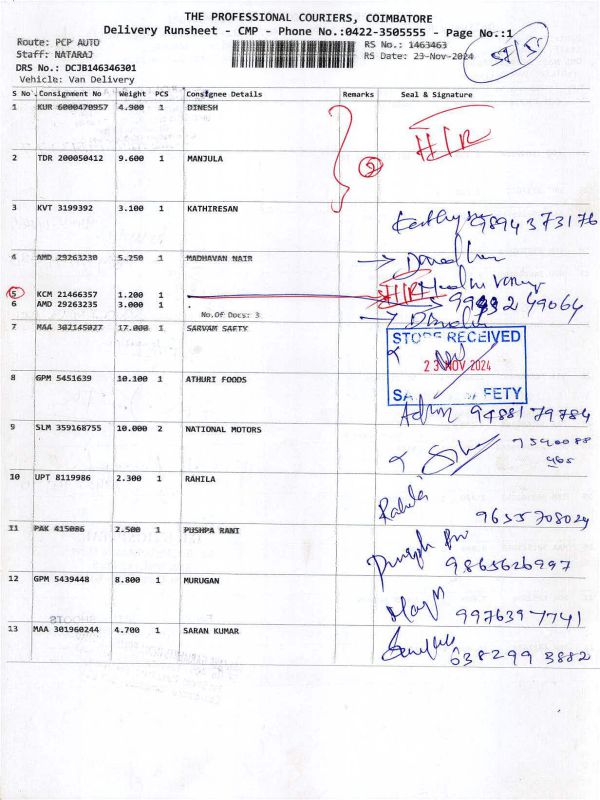 THE PROFESSIONAL COURIERS, COIMBATORE
Delivery Runsheet - CMP - Phone No.:0422-3505555 - Page No.:1
Route: PCP AUTO
Staff: NATARAJ
DRS No.: DCJB146346301
Vehicle: Van Delivery
RS No.: 1463463
RS Date: 23-Nov-2024
S No Consignment No Weight PCS Consignee Details Remarks Seal & Signature
1 KUR 6000470957 4.900 1 DINESH
2 TDR 200050412 9.600 1 MANJULA
3 KVT 3199392 3.100 1 KATHIRESAN
9894373176
4 AMD 29263230 5.250 1 MADHAVAN NAIR
5 KCM 21466357 1.200 1
6 AMD 29263235 3.000 1 .
No.Of Docs: 3
7 MAA 302145027 17.000 1 SARVAM SAFTY
STORE RECEIVED
23 NOV 2024
SAFETY
8 GPM 5451639 10.100 1 ATHURI FOODS
9488179784
9 SLM 359168755 10.000 2 NATIONAL MOTORS
10 UPT 8119986 2.300 1 RAHILA
Rahila
9655708029
11 PAK 415086 2.500 1 PUSHPA RANI
9865626997
12 GPM 5439448 8.800 1 MURUGAN
9976397741
13 MAA 301960244 4.700 1 SARAN KUMAR
6382993882